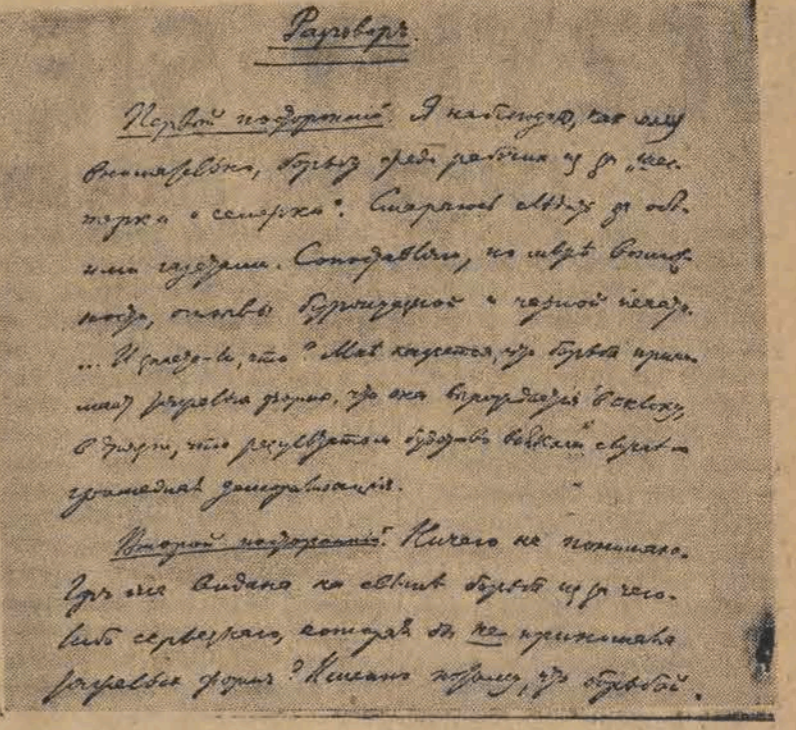 Разговоръ.
Первый посторонний. Я наблюдаю, как могу
внимательно, борьбу среди рабочих из за „шес-
терки и семерки“. Стараюсь следить за обе-
ими газетами. Сопоставляю, по мѣрѣ возмож-
ности, отзывы буржуазной и черной печати.
... И знаете-ли, что? Мнѣ кажется, что борьба прини-
мает тяжелыя формы, что она вырождается в склоку,
в дрязги, что результатом будет во всяком случае
громадная деморализация.
Второй посторонний. Ничего не понимаю.
Где это видана на свѣтѣ борьба из за чего-
либо серьезнаго, которая бы не принимала
тяжелых форм? Именно потому, что борьба